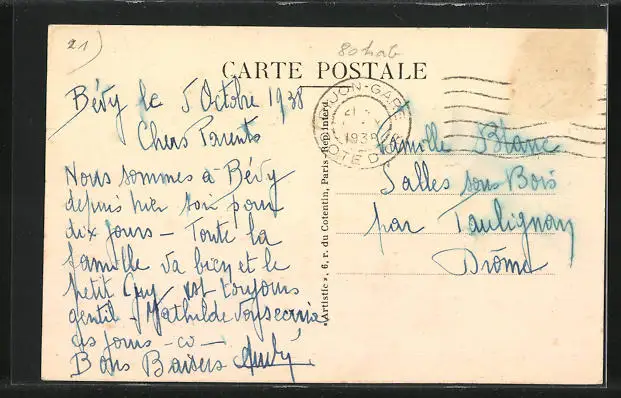 21)
80 hab
CARTE POSTALE
Bévy le 5 Octobre 1938
Chers Parents
Nous sommes à Bévy
depuis hier soir pour
dix jours — Toute la
famille va bien et le
petit Guy est toujours
gentil. Mathilde vous ecrira
ces jours-ci —
Bons Baisers
DIJON-GARE
1938
COTE D'OR
«Artistic», 6, r. du Cotentin, Paris - Rep. Interd.
Famille Blanc
Salles sous Bois
par Taulignan
Drôme